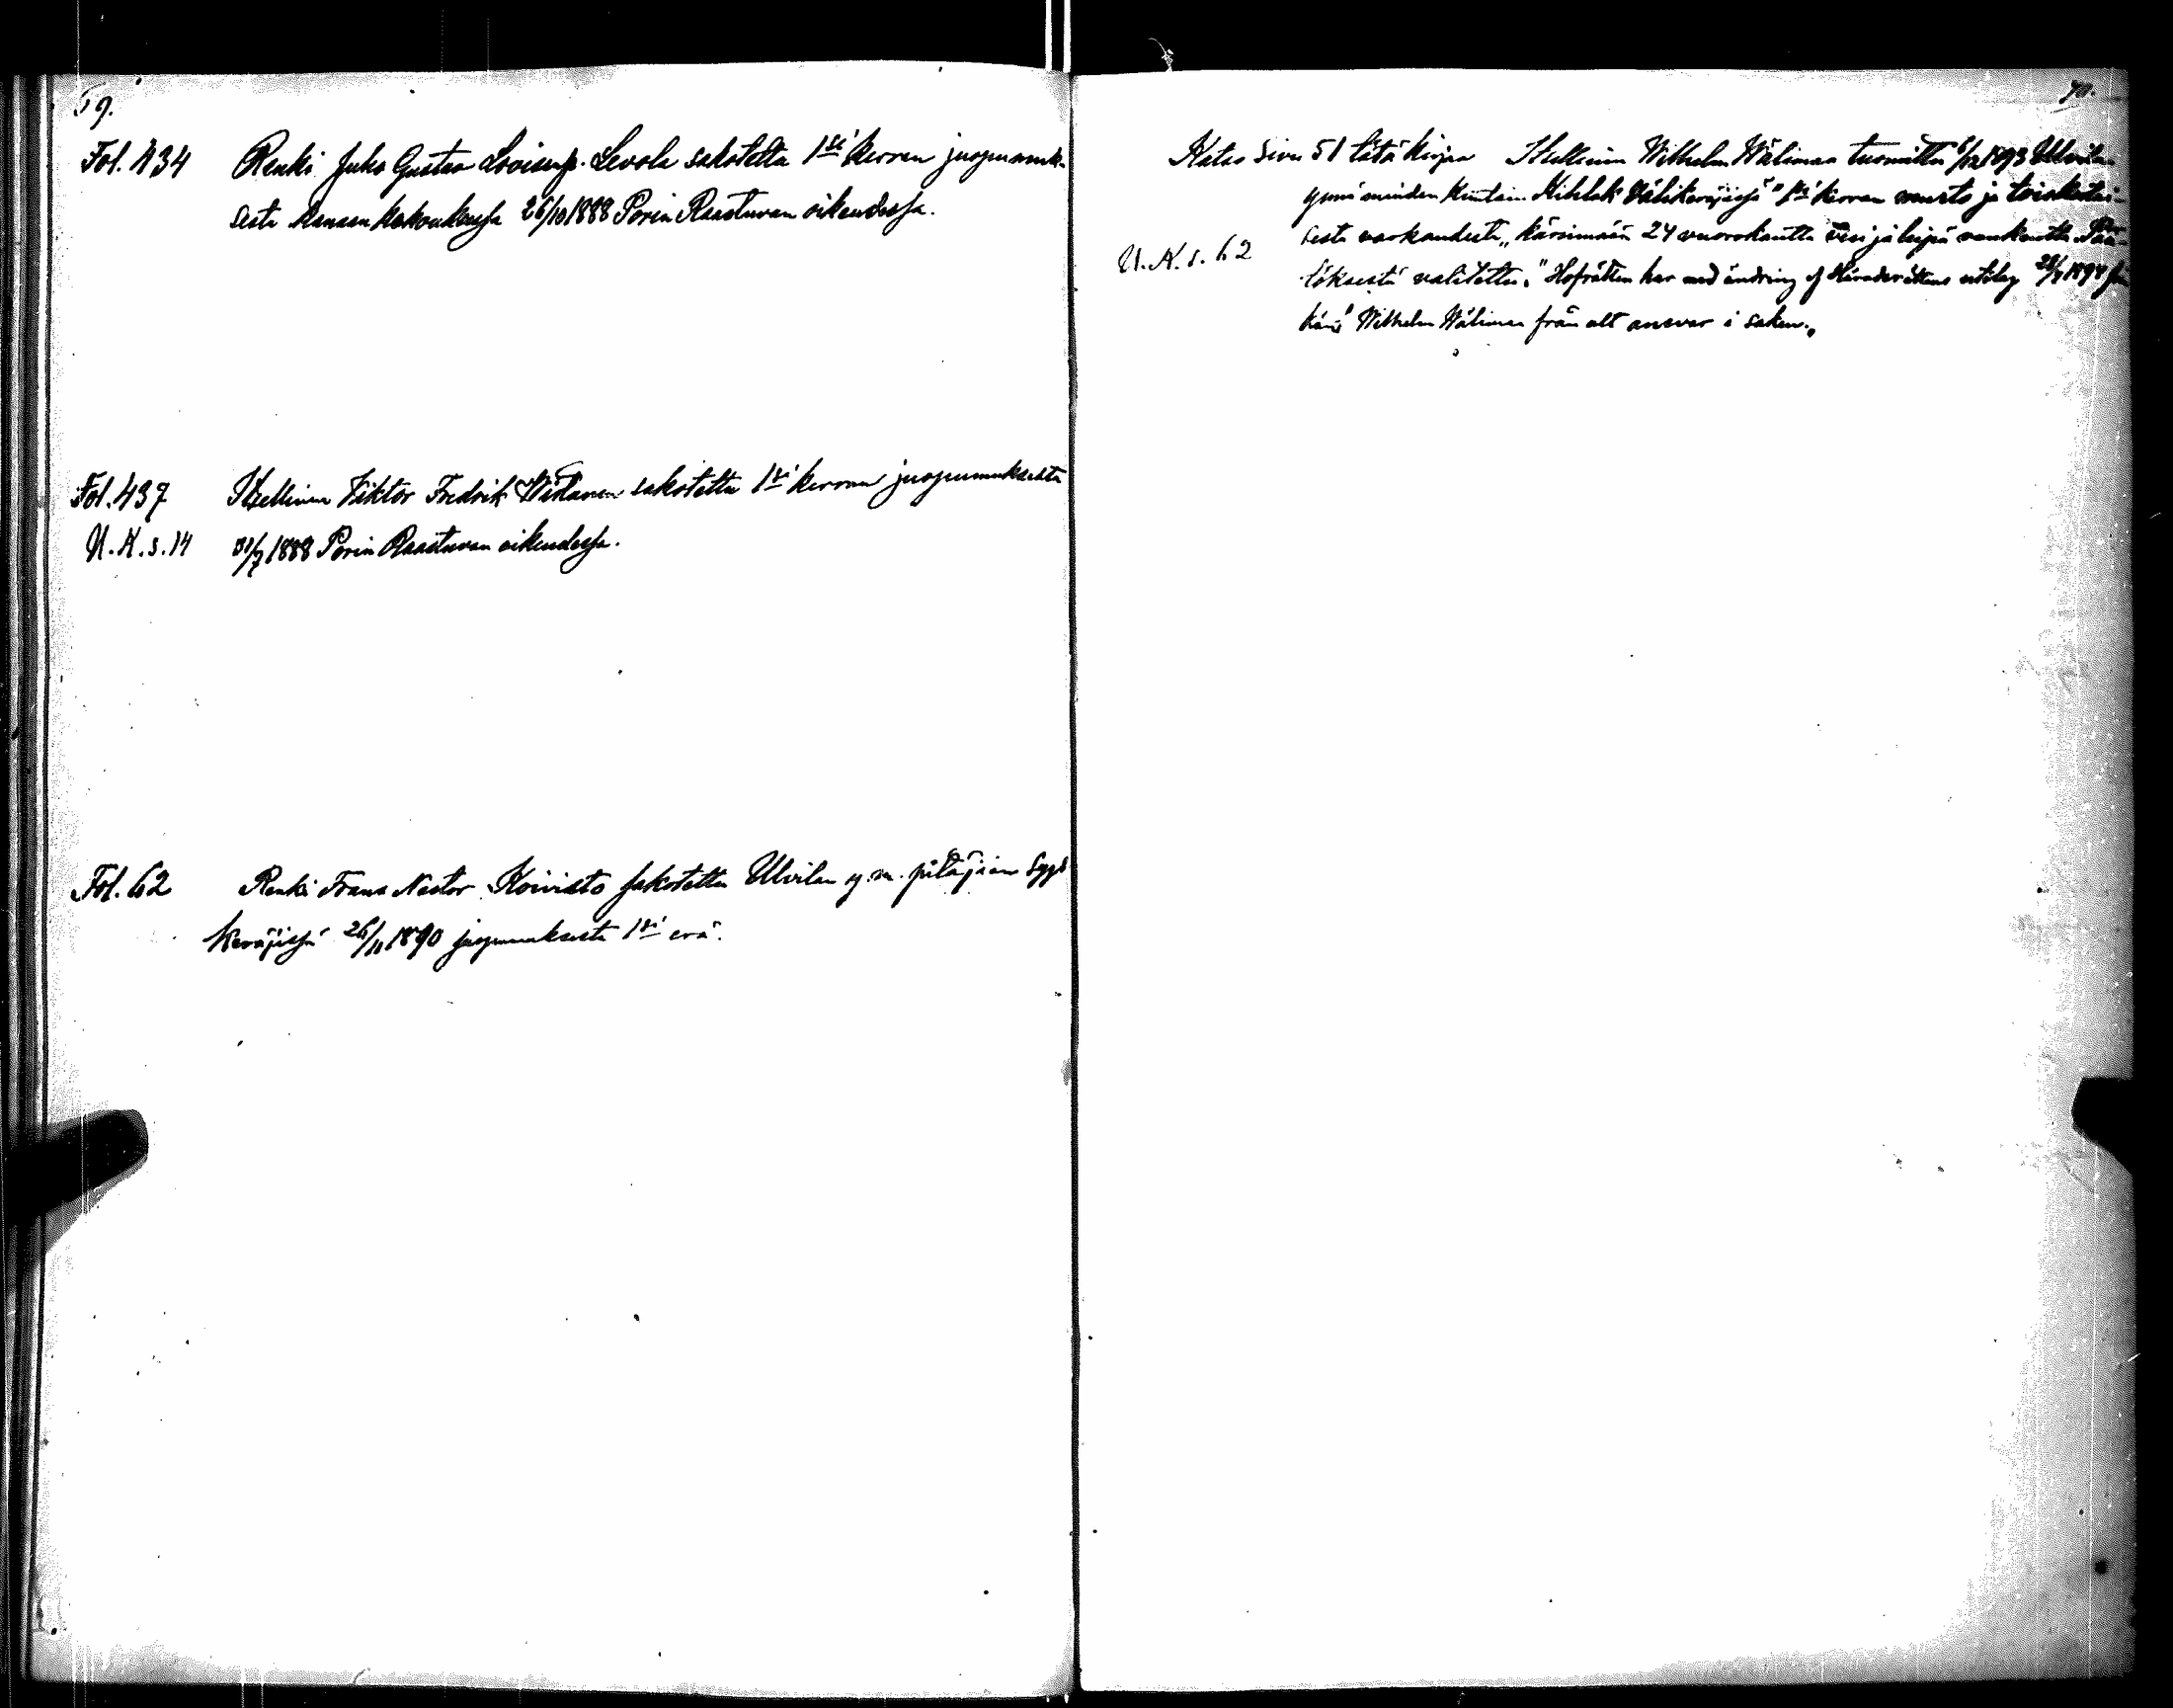 69.
Fol. 434 Renki Juho Gustaa Loviisanp. Levola sakotettu 1si kerran juopumuk-
sesta kansan kokouksessa 26/10 1888 Porin Raastuvan oikeudessa.
Fol. 437 Itsellinen Viktor Fredrik sakotettu 1si kerran juopumuksesta
U.K.s.14 31/7 1888 Porin Raastuvan oikeudessa.
Fol. 62 Renki Frans Nestor Koivisto sakotettu Ulvilan y.m. pitäjäin Syys
Keräjissä 26/11 1890 juopumuksesta 1si erä.
70.
Katso Sivu 51 tätä kirjaa Itsellinen Wilhelm Wälimaa tuomittu 6/12 1893 Ulvilan
ynnä muiden Kihlak Välikeräjissä "1si kerran murto ja
sesta varkaudesta" kärsimään 24 vuorokautta vesi ja leipä vankeutta. Pää-
U.K.s. 62
töksestä valitettu. "Hofrätten har med ändring af Häradsrättens utslag 28/7 1894 fri
känt Wilhelm Wälimaa från alt ansvar i saken."